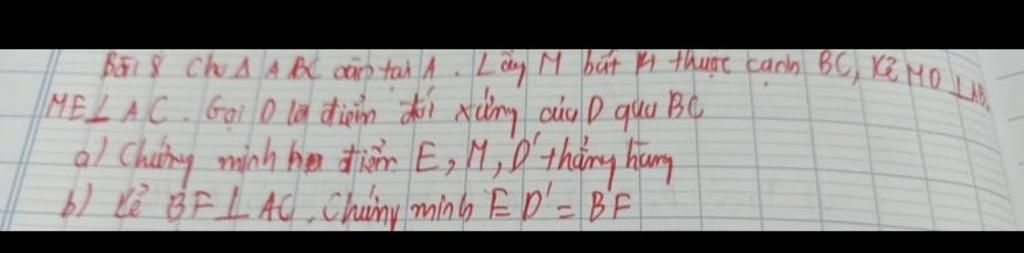 Bài 8 Cho Δ ABC cân tại A. Lấy M bất kì thuộc cạnh BC, Kẻ MD ⊥ AB,
ME ⊥ AC. Gọi D là điểm đối xứng của D qua BC
a) Chứng minh ba điểm E, M, D' thẳng hàng
b) Kẻ BF ⊥ AC. Chứng minh ED' = BF